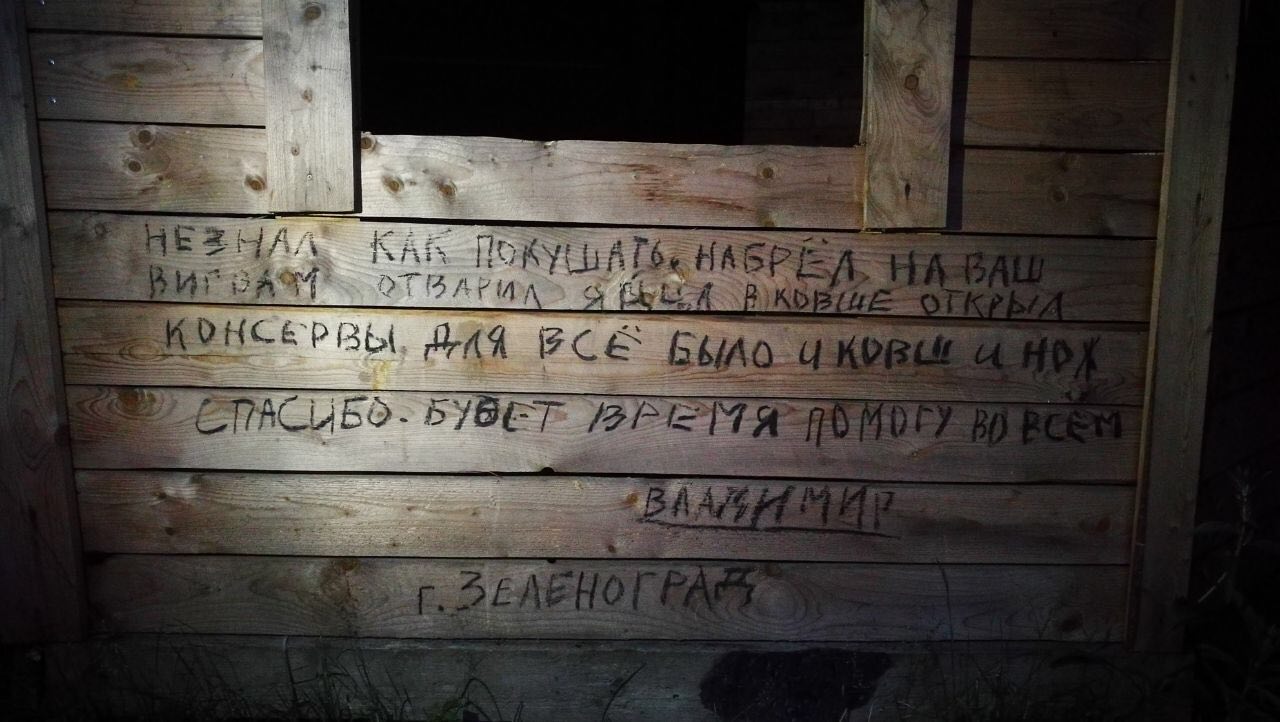 НЕЗНАЛ КАК ПОКУШАТЬ. НАБРЁЛ НА ВАШ
ВИГВАМ ОТВАРИЛ ЯЙЦА В КОВШЕ ОТКРЫЛ
КОНСЕРВЫ ДЛЯ ВСЁ БЫЛО И КОВШ И НОЖ
СПАСИБО. БУДЕТ ВРЕМЯ ПОМОГУ ВО ВСЁМ
ВЛАДИМИР
г. ЗЕЛЕНОГРАД